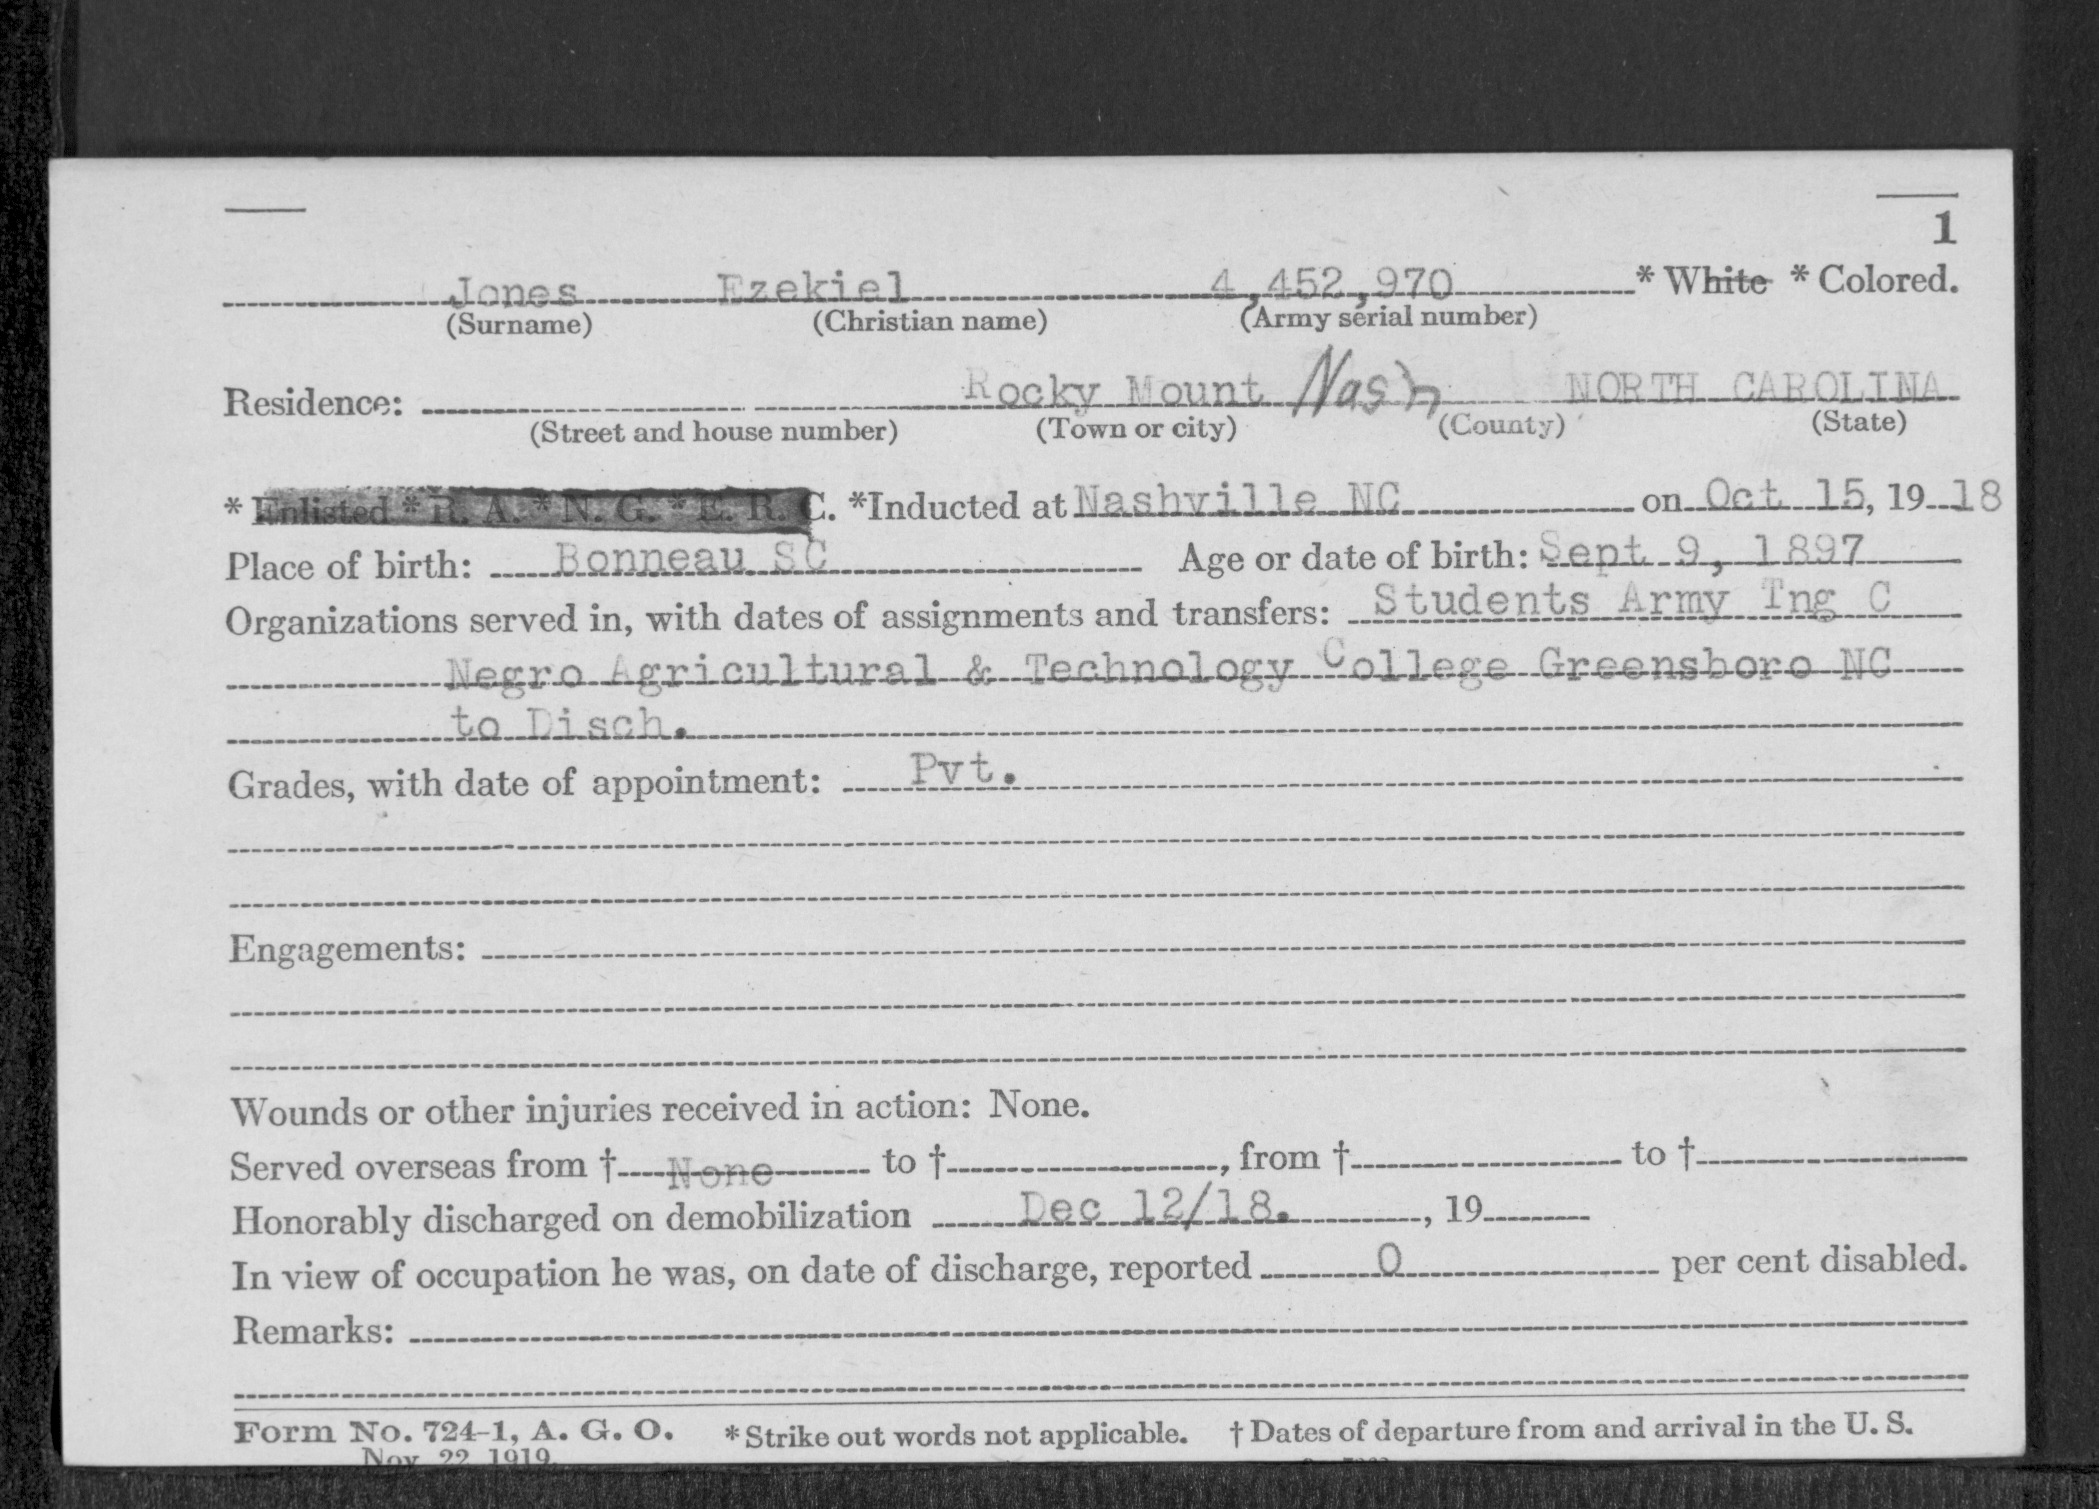 1
Jones Ezekiel 4,452,970 * White * Colored.
(Surname) (Christian name) (Army serial number)
Residence: Rocky Mount Nash NORTH CAROLINA
(Street and house number) (Town or city) (County) (State)
* Enlisted * R. A. * N. G. * E. R. C. *Inducted at Nashville NC on Oct 15, 19 18
Place of birth: Bonneau SC Age or date of birth: Sept 9, 1897
Organizations served in, with dates of assignments and transfers: Students Army Tng C
Negro Agricultural & Technology College Greensboro NC
to Disch.
Grades, with date of appointment: Pvt.
Engagements:
Wounds or other injuries received in action: None.
Served overseas from † None to †, from † to †
Honorably discharged on demobilization Dec 12/18. , 19
In view of occupation he was, on date of discharge, reported 0 per cent disabled.
Remarks:
Form No. 724-1, A. G. O. * Strike out words not applicable. † Dates of departure from and arrival in the U. S.
Nov. 22, 1919.